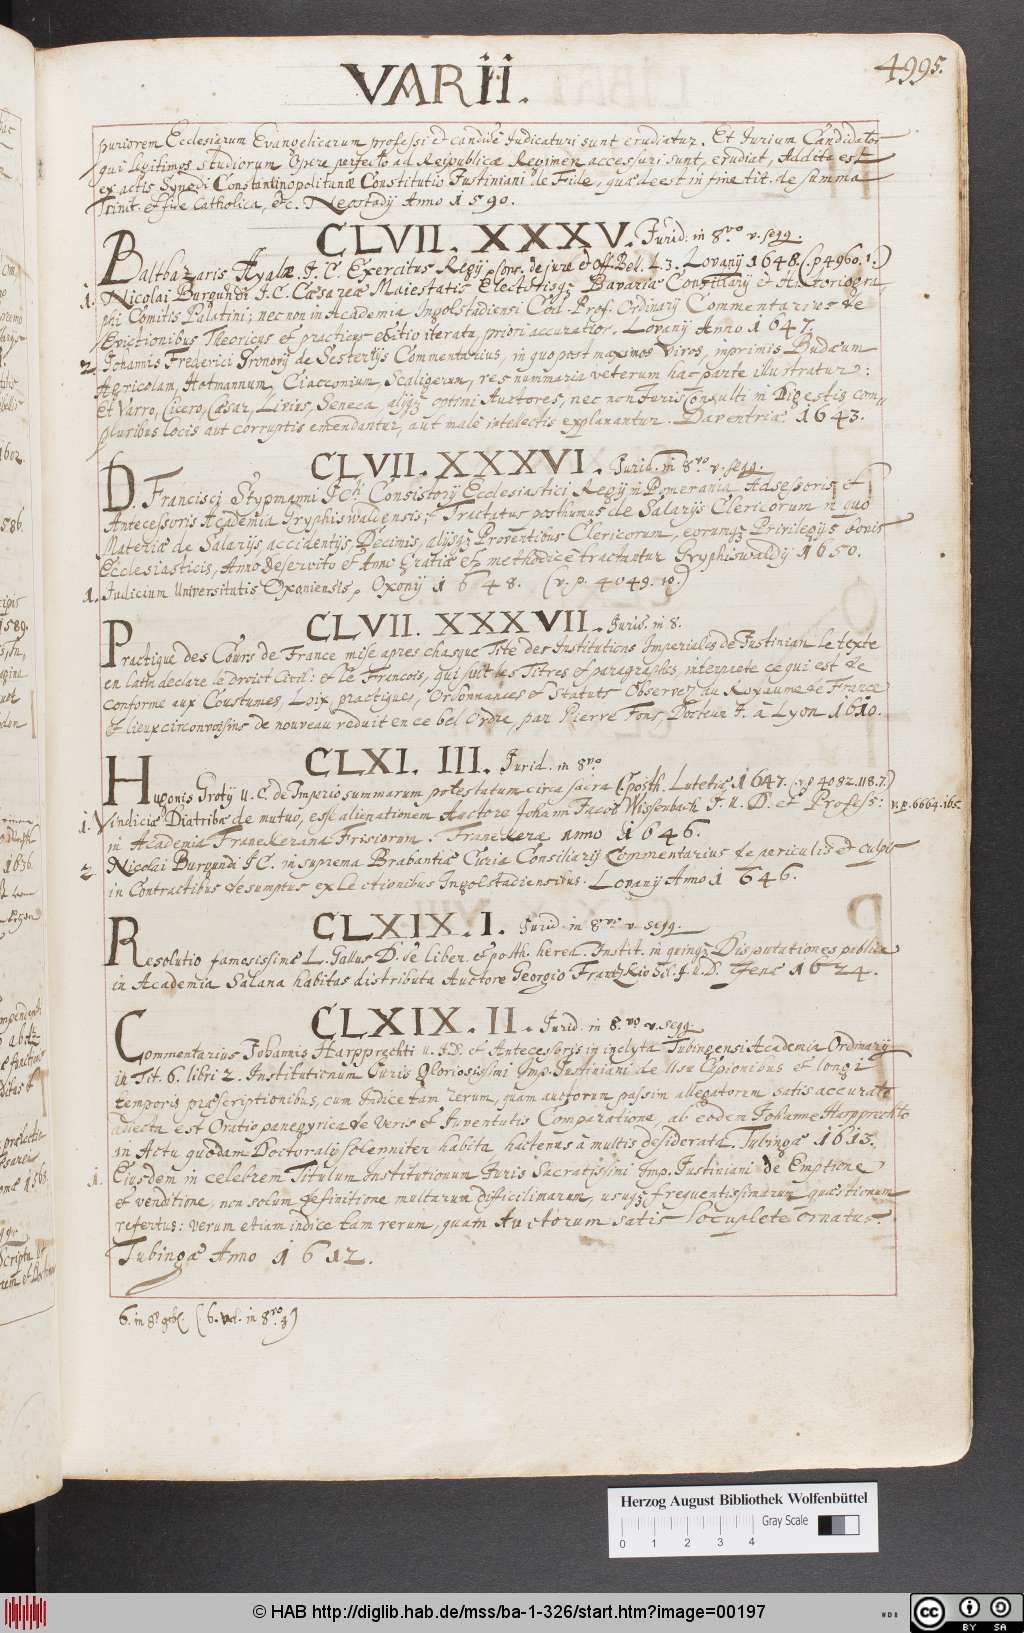 VARII.
4995.
puriorem Ecclesiarum Evangelicarum professi et candidè Judicaturi sunt erudiatur. Et Jurium Candidatos
qui legitimos studiorum Opere perfecto ad Reipublicæ Regimen accessuri sunt, erudiat, Addita est
ex actis Synodi Constantinopolitanæ Constitutio Justiniani de Fide, quæ deest in fine tit. de summa
Trinit. et fide Catholica, &c. Neostadij Anno 1590.
CLVII. XXXV. Jurid: in 8vo v. seqq.
Balthazaris Ayalæ. J. C. Exercitus Regij de jure et Off. Bel. L. 3. Lovanij 1648. (p 4960. 1.)
1. Nicolai Burgundi J. C. Cæsareæ Maiestatis Electorisq; Bavariæ Consiliarij et Historiogra-
phi Comitis Palatini; nec non in Academia Ingolstadiensi Cod. Prof. Ordinarij Commentarius de
Evictionibus Theoricus et practicus editio iterata, priori accuratior. Lovanij Anno 1647.
2. Johannis Frederici Gronovij de Sestertijs Commentarius, in quo post maximos Viros, inprimis Budæum
Agricolam, Hotmannum, Ciacconium, Scaligerum, res nummaria veterum hac parte illustratur:
Et Varro, Cicero, Cæsar, Livius, Seneca, alijq; optimi Auctores, nec non Juris Consulti in Digestis com-
pluribus locis aut corruptis emendantur, aut malè intellectis explanantur. Daventriæ 1643.
CLVII. XXXVI. Jurid. in 8vo v. seqq.
D. Francisci Stypmanni JCti Consistorij Ecclesiastici Regij in Pomerania Adsessoris et
Antecessoris Academiæ Gryphiswaldensis, Tractatus posthumus de Salarijs Clericorum in quo
Materiæ de Salarijs, accidentijs, Decimis, alijsq; Proventibus Clericorum, eorumq; Privilegijs bonis
Ecclesiasticis, Anno deservito et Anno Gratiæ et methodicè tractantur Gryphiswaldij 1650.
1. Judicium Universitatis Oxoniensis, Oxonij 1648. (v. p. 4049. 10.)
CLVII. XXXVII. Jurid. in 8.
Practique des Cours de France mise apres chasque Tité des Institutions Imperiales de Justinian le texte
en latin declare le Droict Civil: et le Francois, qui suit les Titres et paragraphes, interprete ce qui est de
conforme aux Coustumes, Loix, practiques, Ordonnances et Statuts Observez au Royaume de France
et lieux circonvoisins de nouveau reduit en ce bel Ordre, par Pierre Fons, Docteur J. à Lyon 1610.
CLXI. III. Jurid. in 8vo
Hugonis Grotij U. C. de Imperio summarum potestatum circa sacra (posth. Lutetiæ, 1647. (v p 4082. 118. 7.)
1. Vindiciæ Diatribæ de mutuo, esse alienationem Auctore Johann Jacob Wissenbach J. U. D. et Profess: v. p. 6664. 165.
in Academia Franekerana Frisiorum. Franekeræ anno 1646.
2 Nicolai Burgundi JC. in suprema Brabantiæ Curia Consiliarij Commentarius de periculis et culpis
in Contractibus desumptus ex Lectionibus Ingolstadiensibus. Lovanij Anno 1646.
CLXIX. I. Jurid. in 8vo v. seqq.
Resolutio famosissimæ L. Gallus D. de liber. et posth. hered. Instit. in quinq; Disputationes publicè
in Academia Salana habitas distributa Auctore Georgio Frantzkio Sil. J. U. D. Jenæ 1624.
CLXIX. II. Jurid. in 8.vo v. seqq
Commentarius Johannis Harpprechti U. J. D. et Antecessoris in inclyta Tubingensi Academia Ordinarij
in Tit. 6. libri 2. Institutionum Juris Gloriosissimi Imp. Justiniani de Usu Capionibus et longi
temporis præscriptionibus, cum Indice tam rerum, quam auctorum passim allegatorum satis accurate
adjecta est Oratio panegyrica de Veris et Juventutis Comparatione, ab eodem Johanne Harpprechto
in Actu quodam Doctorali solenniter habita, hactenus à multis desiderata. Tubingæ 1613.
1. Eiusdem in celebrem Titulum Institutionum Juris Sacratissimi Imp. Justiniani de Emptione
et venditione, non solum definitione multarum difficilimarum, usuq; frequentissimarum quæstionum
refertus: verum etiam indice tam rerum, quam Auctorum satis locuplete ornatus.
Tubingæ Anno 1612.
6. in 8vo (6. vol. in 8vo
Herzog August Bibliothek Wolfenbüttel
0 1 2 3 4
Gray Scale
© HAB http://diglib.hab.de/mss/ba-1-326/start.htm?image=00197
WDB
cc BY SA